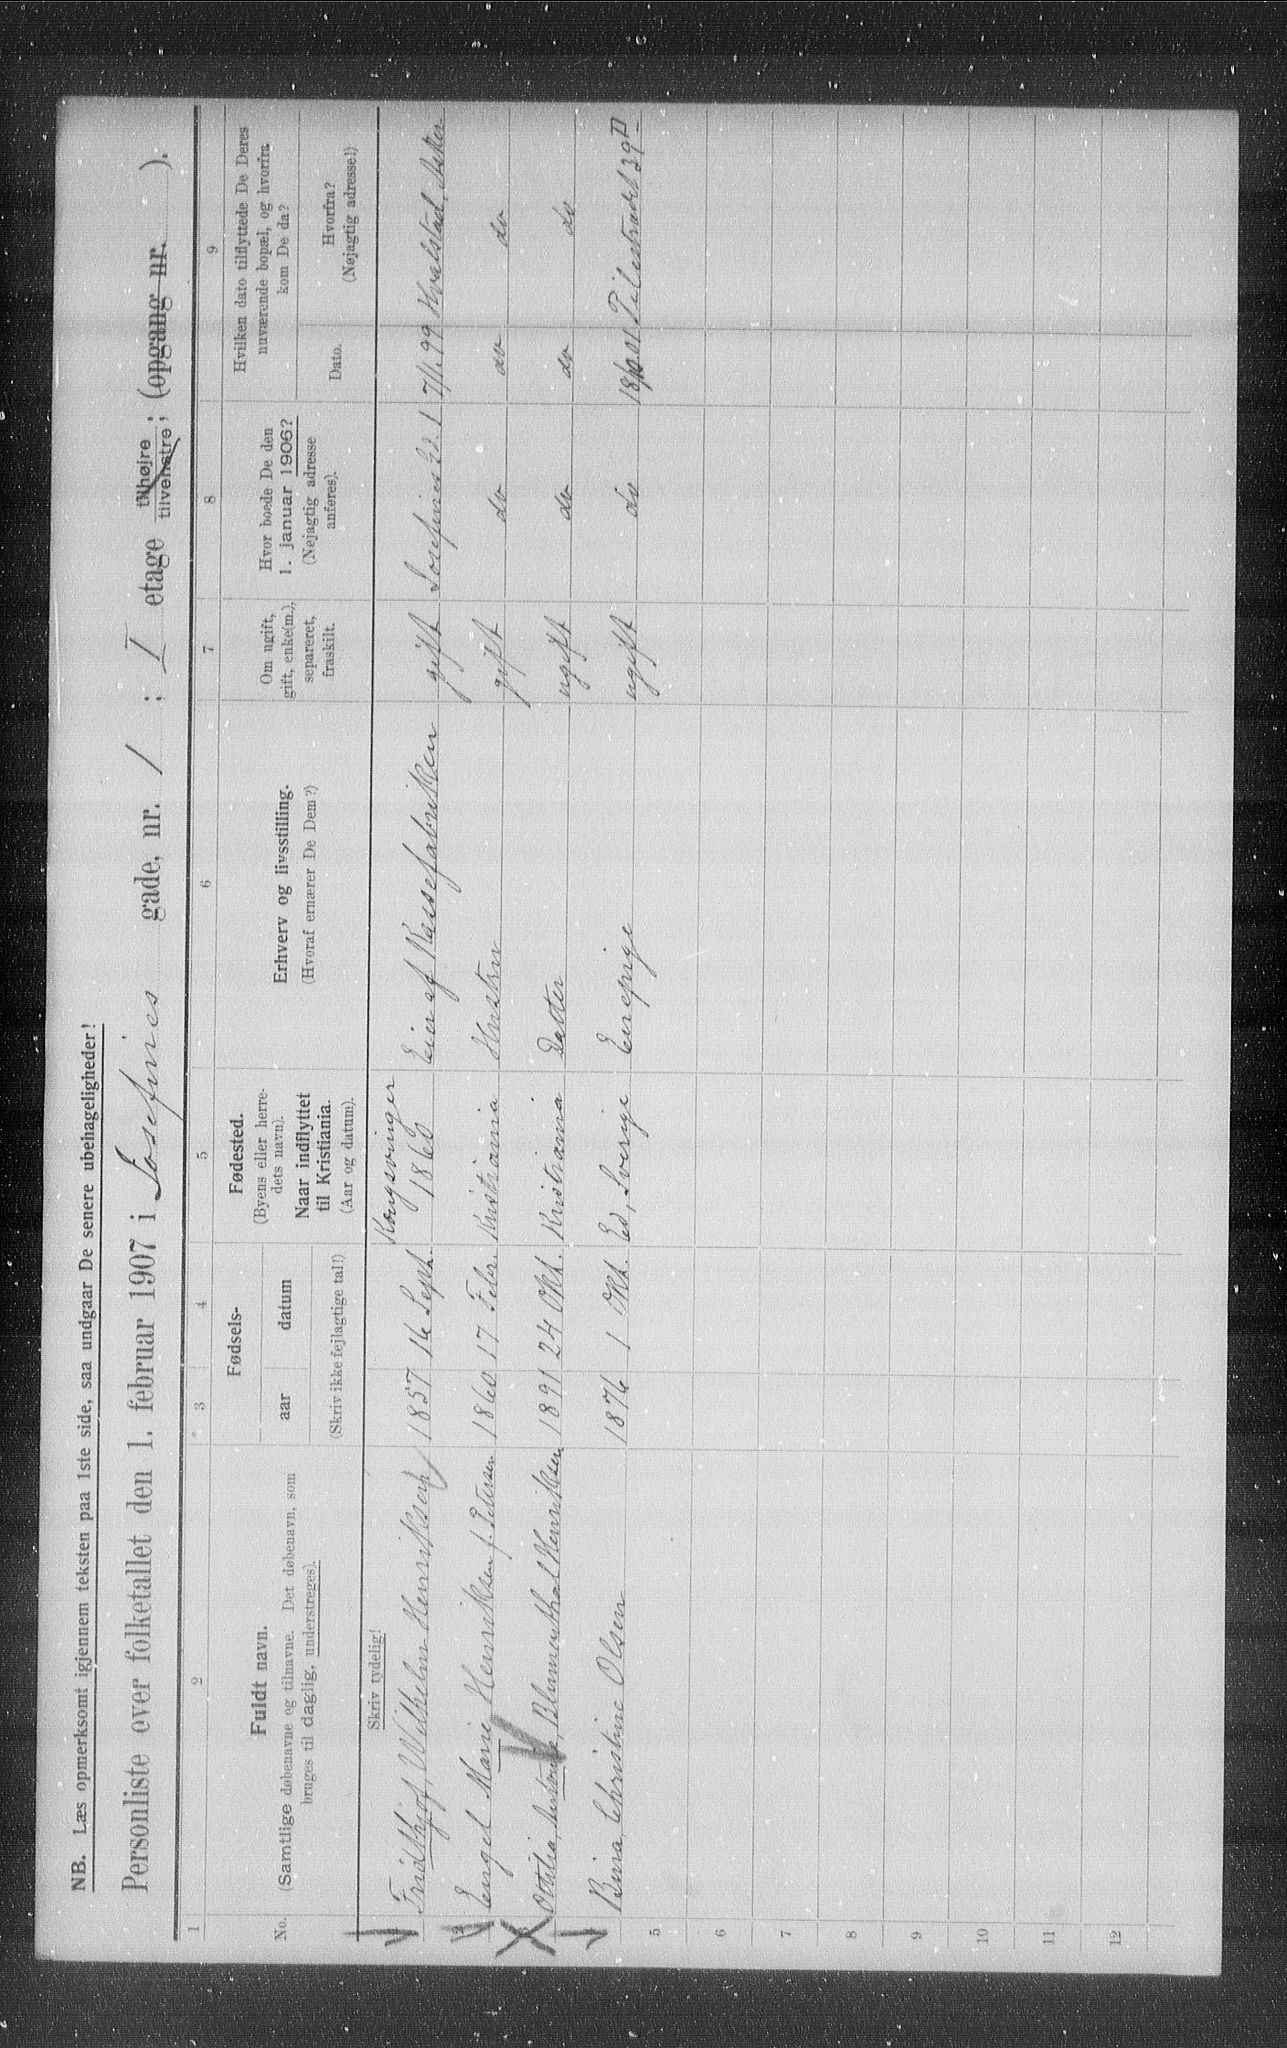 NB. Læs opmerksomt igjennem teksten paa 1ste side, saa undgaar De senere ubehageligheder!
Personliste over folketallet den 1. februar 1907 i Josefines gade, nr. 1 ; I etage tilhøjre tilvenstre ; (opgang nr. ).
1 2 3 4 5 6 7 8 9
No.
Fuldt navn.
(Samtlige døbenavne og tilnavne. Det døbenavn, som
bruges til daglig, understreges).
Fødsels-
aar datum
(Skriv ikke fejlagtige tal!)
Fødested.
(Byens eller herre-
dets navn).
Naar indflyttet
til Kristiania.
(Aar og datum).
Erhverv og livsstilling.
(Hvoraf ernærer De Dem?)
Om ugift,
gift, enke(m.),
separeret,
fraskilt.
Hvor boede De den
1. januar 1906?
(Nøjagtig adresse
anføres).
Hvilken dato tilflyttede De Deres
nuværende bopæl, og hvorfra
kom De da?
Dato.
Hvorfra?
(Nøjagtig adresse!)
Skriv tydelig!
Fridthjof, Wilhelm Henriksen 1857 16 Sept. Kongsvinger 1860 Eier af gift Josefines Gd. 1 7/1 99 Hvalstad, Asker
Engel Marie Henriksen f. Petersen 1860 17 Febr. Kristiania Hustru gift do do do
Ottilia, Blumenthal Henriksen 1891 24 Okt. Kristiania Datter ugift do do do
Bina, Christine Olsen 1876 1 Okt. Ed, Sverige Enepige ugift do Pilestrædet 39
5
6
7
8
9
10
11
12